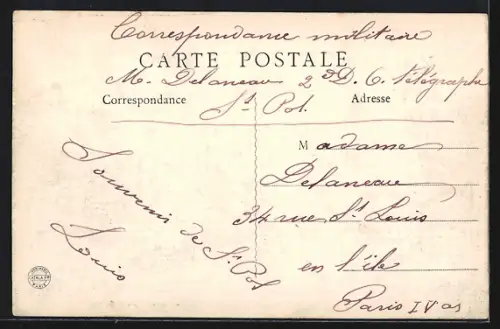 Correspondance militaire
CARTE POSTALE
M. Delaneau 2e D. C. télégraphe
St Pol.
Correspondance
Adresse
Souvenir de St Pol
Louis
Madame
Delaneau
34 rue St Louis
en l'île
Paris IV ar